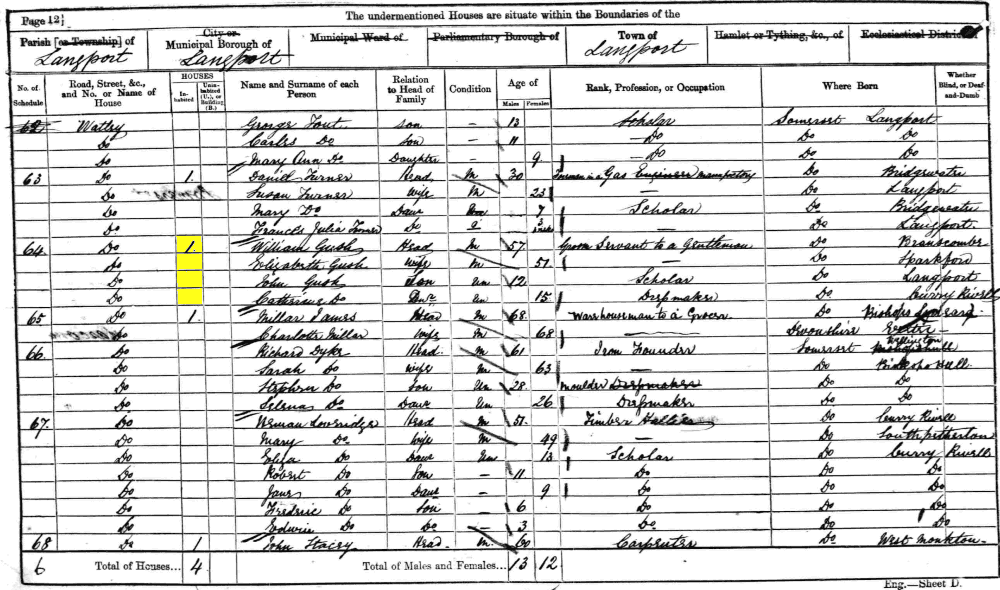 Page 12½
The undermentioned Houses are situate within the Boundaries of the
Parish [or Township] of
City or Municipal Borough of
Municipal Ward of
Parliamentary Borough of
Town of
Hamlet or Tything, &c., of
Ecclesiastical District of
Langport Langport Langport
No. of Schedule
Road, Street, &c., and No. or Name of House
HOUSES
Inhabited
Uninhabited (U.), or Building (B.)
Name and Surname of each Person
Relation to Head of Family
Condition
Age of
Males Females
Rank, Profession, or Occupation
Where Born
Whether Blind, or Deaf-and-Dumb
62 George Son — 13 Scholar Somerset Langport
Do Do Son — 11 — Do Do Do
Do Mary Ann Do Daughter — 9 — Do Do Do
63 Do 1 David Turner Head M 30 Gas Do Bridgwater
Do Susan Turner Wife M 23 — Do Langport
Do Mary Do Daur 7 Scholar Do Bridgwater
Do Frances Julia Turner Do 3 — Do Langport
64 Do 1 William Gush Head M 57 Groom Servant to a Gentleman Do Branscombe
Do Elizabeth Gush Wife M 51 — Do Sparkford
Do John Gush Son Un 12 Scholar Do Langport
Do Catherine Do Daur Un 15 Do Curry Rivell
65 Do 1 Millar James Head M 68 Warehouseman to a Grocer Do Bishops
Do Charlotte Millar Wife M 68 — Devonshire Exeter
66 Do Richard Dyke Head M 61 Iron Founder Somerset Wellington
Do Sarah Do Wife M 63 — Do
Do Stephen Do Son Un 28 Moulder Do Do
Do Selena Do Daur Un 26 Do Do
67 Do Lowridge Head M 51 Timber Do Curry Rivell
Do Mary Do Wife M 49 — Do Southpetherton
Do Eliza Do Daur Un 13 Scholar Do Curry Rivell
Do Robert Do Son — 11 Do Do Do
Do Jane Do Daur — 9 Do Do Do
Do Fredric Do Son — 6 Do Do Do
Do Edwin Do Do — 3 Do Do Do
68 Do 1 John Stacey Head M 60 Carpenter Do West Monkton
6 Total of Houses... 4 Total of Males and Females... 13 12
Eng.—Sheet D.